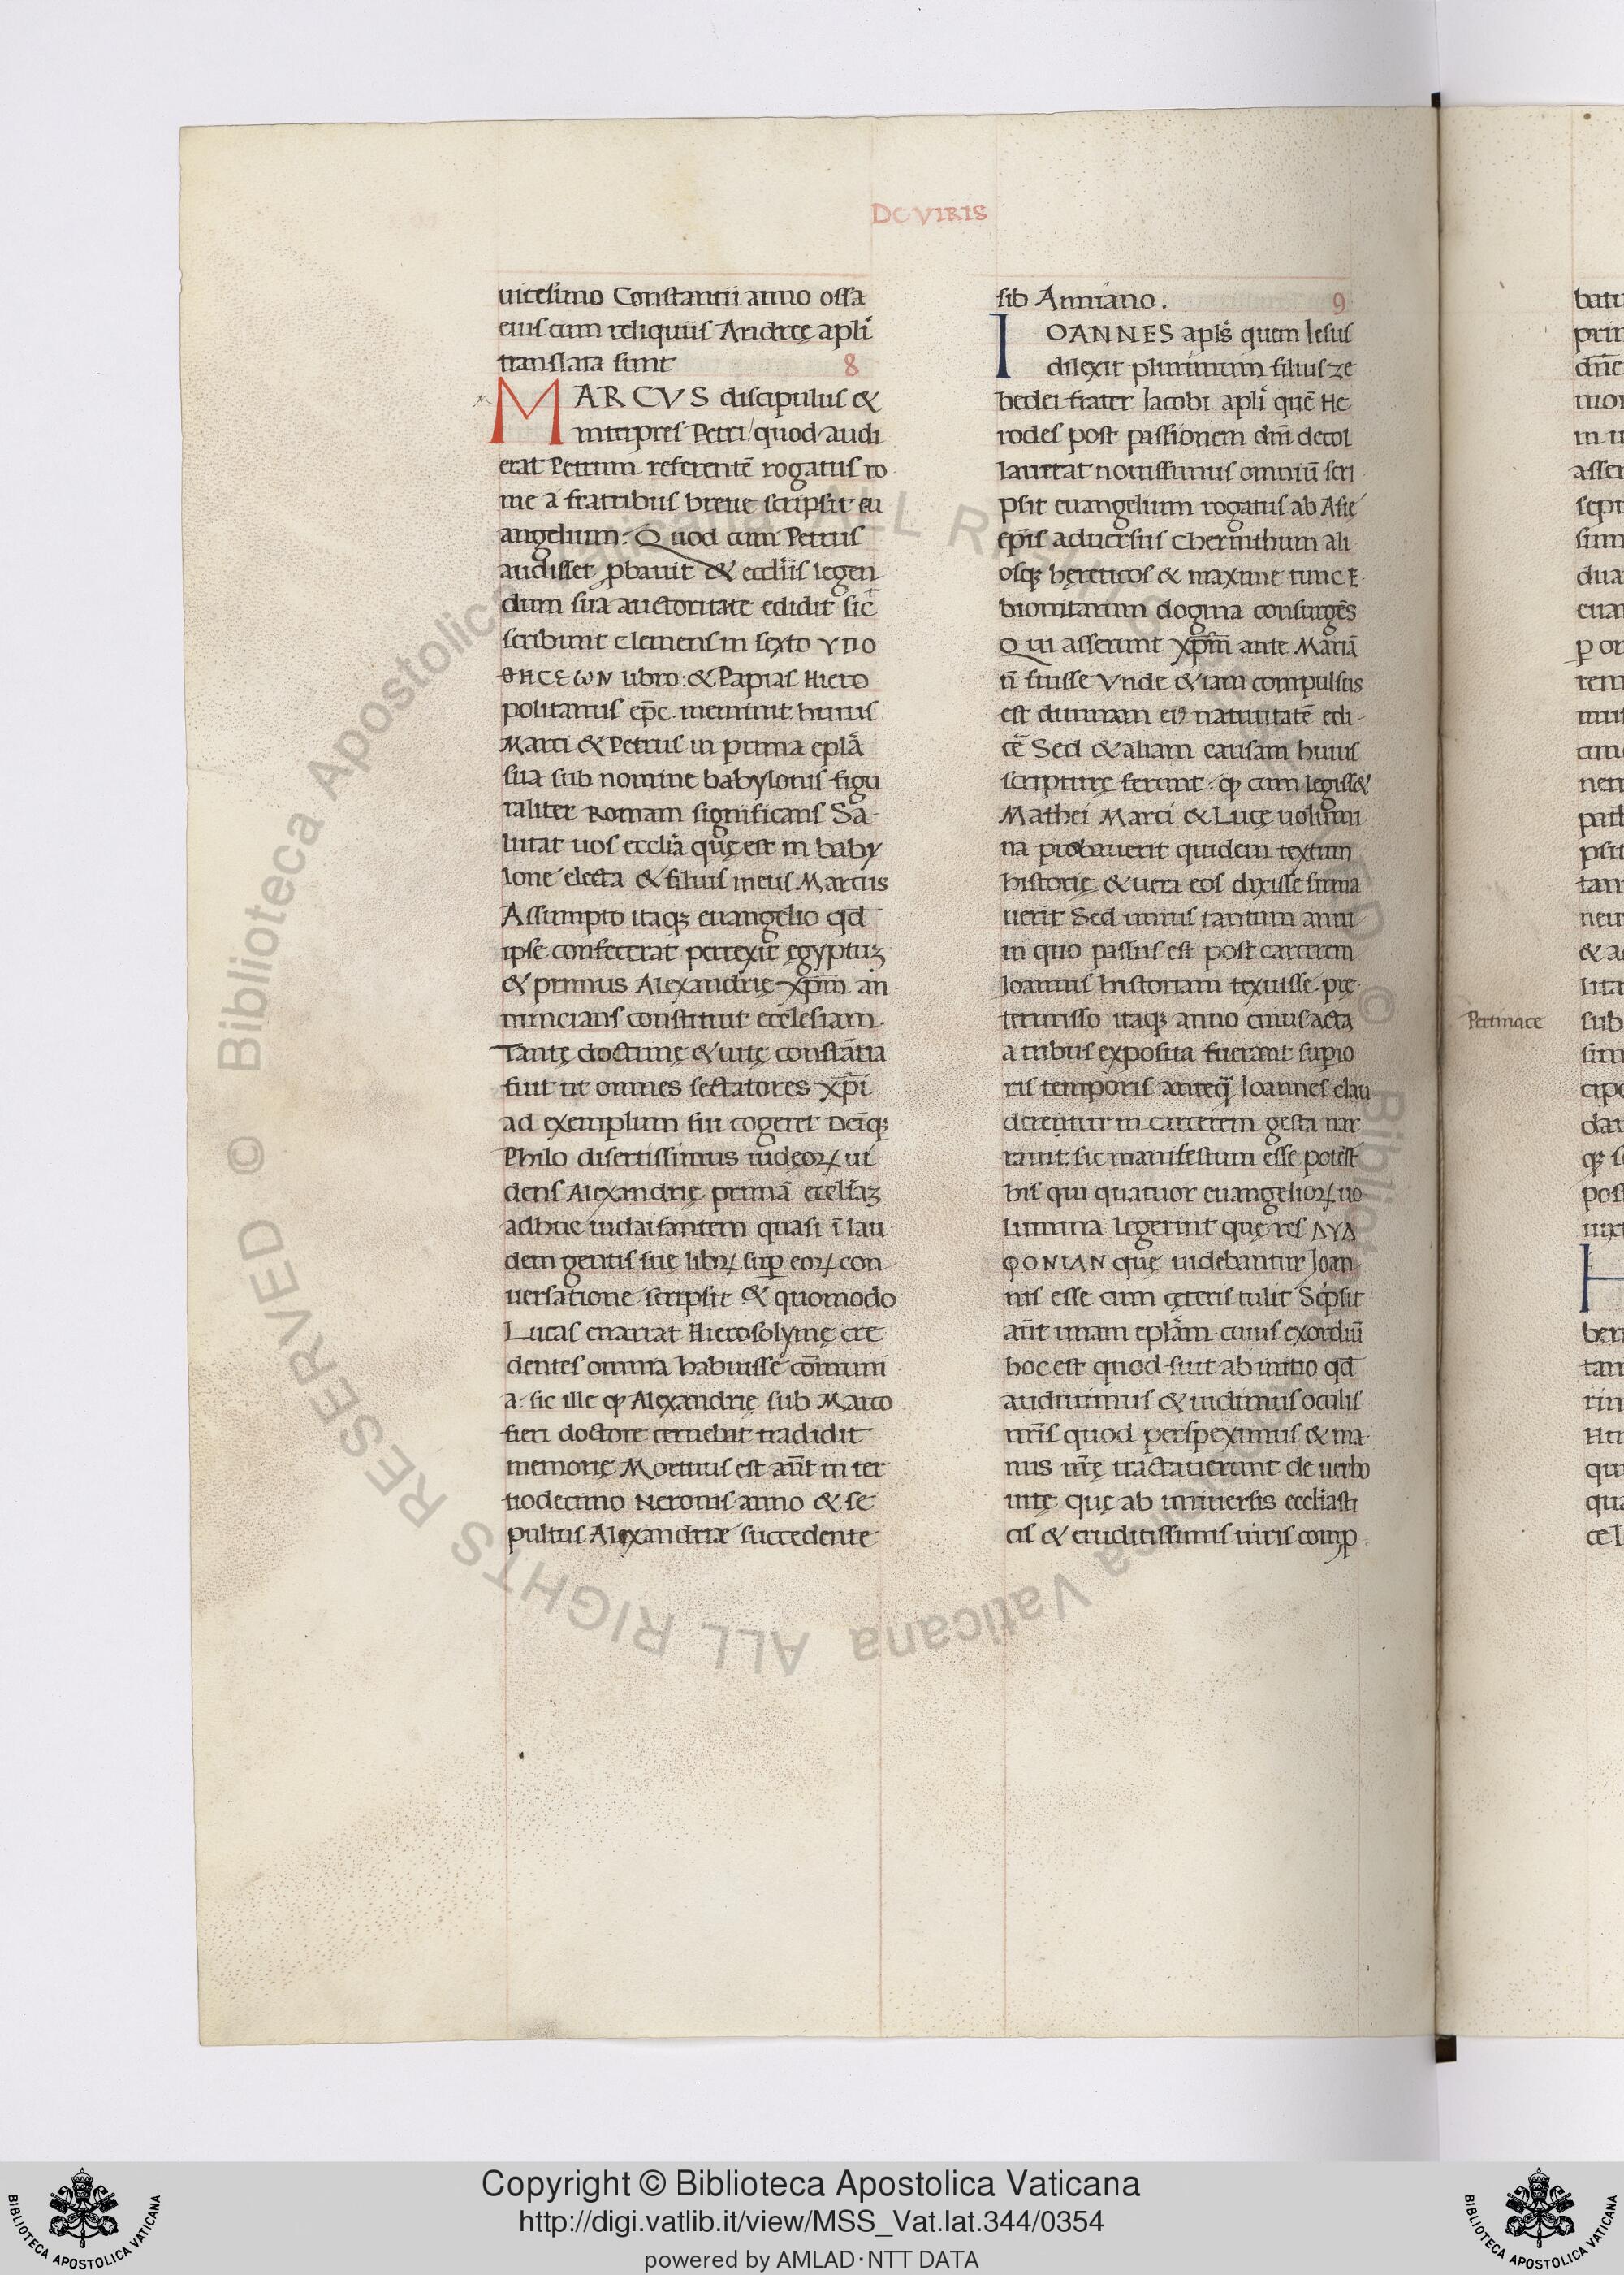 DE VIRIS
uicesimo Constantii anno ossa
eius cum reliquiis Andreę apl̄i
translata sunt 8
MARCVS discipulus &
interpres Petri/quod audi
erat Petrum referentē rogatus ro
me a fratribus breue scripsit eu
angelium: Quod cum Petrus
audisset ꝓbauit & eccl̄iis legen
dum sua auctoritate edidit sic̄
scribunt Clemens in sexto ΥΠΟ
ΘΗСΕωΝ libro: & Papias Hiero
politanus ep̄c. meminit huius
Marci & Petrus in prima epl̄a
sua sub nomine babylonis figu
raliter Romam significans Sa-
lutat uos eccl̄ia quę est in baby
lone electa & filius meus Marcus
Assumpto itaqꝫ euangelio qd̄
ipse confecerat perrexit ęgyptuꝫ
& primus Alexandrię xp̄m̄ an
nuncians constituit ecclesiam.
Tantę doctrinę & uitę constātia
fuit ut omnes sectatores xp̄i
ad exemplum sui cogeret Deīqꝫ
Philo disertissimus iudęoꝝ ui
dens Alexandrię primā eccl̄iaꝫ
adhuc iudaisantem quasi ī lau
dem gentis suę libꝝ sup̄ eoꝝ con
uersatione scripsit & quomodo
Lucas enarrat Hierosolymę cre
dentes omnia habuisse cōmuni
a. sic ille ꝙ Alexandrię sub Marco
fieri doctore cernebat tradidit
memorię Mortuus est aūt in ter
tiodecimo Neronis anno & se
pultus Alexandriæ succedente
sib Anniano. 9
IOANNES apl̄s quem Iesus
dilexit plurimum filius ze
bedei frater Iacobi apl̄i quē He
rodes post passionem dn̄i decol
lauerat nouissimus omniū scri
psit euangelium rogatus ab Asię
ep̄is aduersus Cherinthum ali
osqꝫ hęreticos & maxime tunc E
bionitarum dogma consurgēs
Qui asserunt xp̄m̄ ante Mariā
n̄ fuisse Vnde & iam compulsus
est diuinam eiꝰ natiuitatē edi-
cē Sed & aliam causam huius
scripturę ferunt. ꝙ cum legiss&
Mathei Marci & Lucę uolumi
na probauerit quidem textum
historię & uera eos dixisse firma
uerit Sed unius tantum anni
in quo passus est post carcerem
Joannis historiam texuisse. pre
termisso itaqꝫ anno cuius acta
a tribus exposita fuerant supio
ris temporis anteq̄ Ioannes clau
derentur in carcerem gesta nar
rauit. sic manifestum esse potest
his qui quatuor euangelioꝝ uo
lumina legerint quę res ΔΥΑ
ΦΟΝΙΑΝ quę uidebantur Joan
nis esse cum cęteris tulit Scp̄sit
aūt unam epl̄am. cuius exordiū
hoc est quod fuit ab initio qd̄
audiuimus & uidimus oculis
nr̄is quod perspeximus & ma
nus nr̄ę tractauerunt de uerbo
uitę quę ab uniuersis eccl̄iasti
cis & eruditissimis uiris comp
Pertinace
Copyright © Biblioteca Apostolica Vaticana
http://digi.vatlib.it/view/MSS_Vat.lat.344/0354
powered by AMLAD·NTT DATA